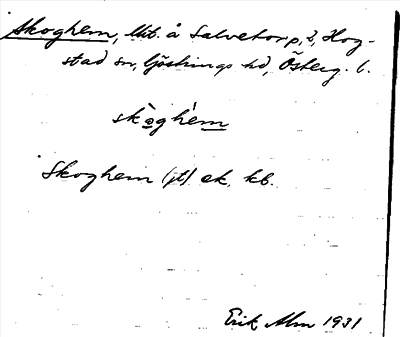 Skoghem, lht. å Salvetorp, 2, Hog-
stad sn, Göstrings hd, Österg. l.
skòghém
Skoghem (jt) ek. kb.
Erik Alm 1931